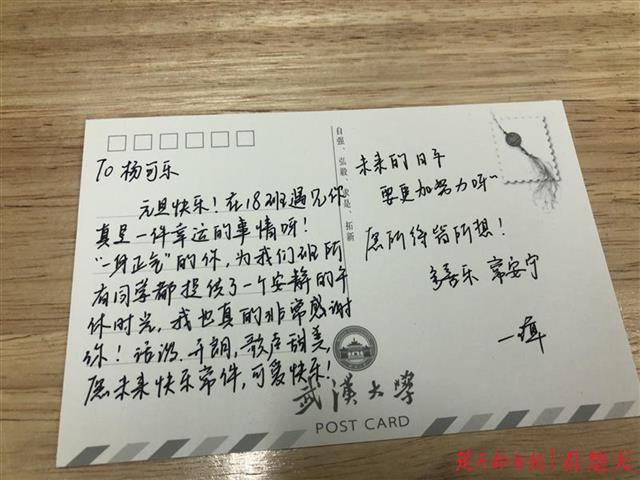 To 杨可乐
元旦快乐！在18班遇见你
真是一件幸运的事情呀！
"一身正气"的你，为我们班所
有同学都提供了一个安静的午
休时光，我也真的非常感谢
你！活泼、开朗，歌声甜美，
愿未来快乐常伴，可爱快乐！
自强、弘毅、求是、拓新
未来的日子
要更加努力呀~
愿所待皆所想！
多喜乐 常安宁
武漢大學
POST CARD